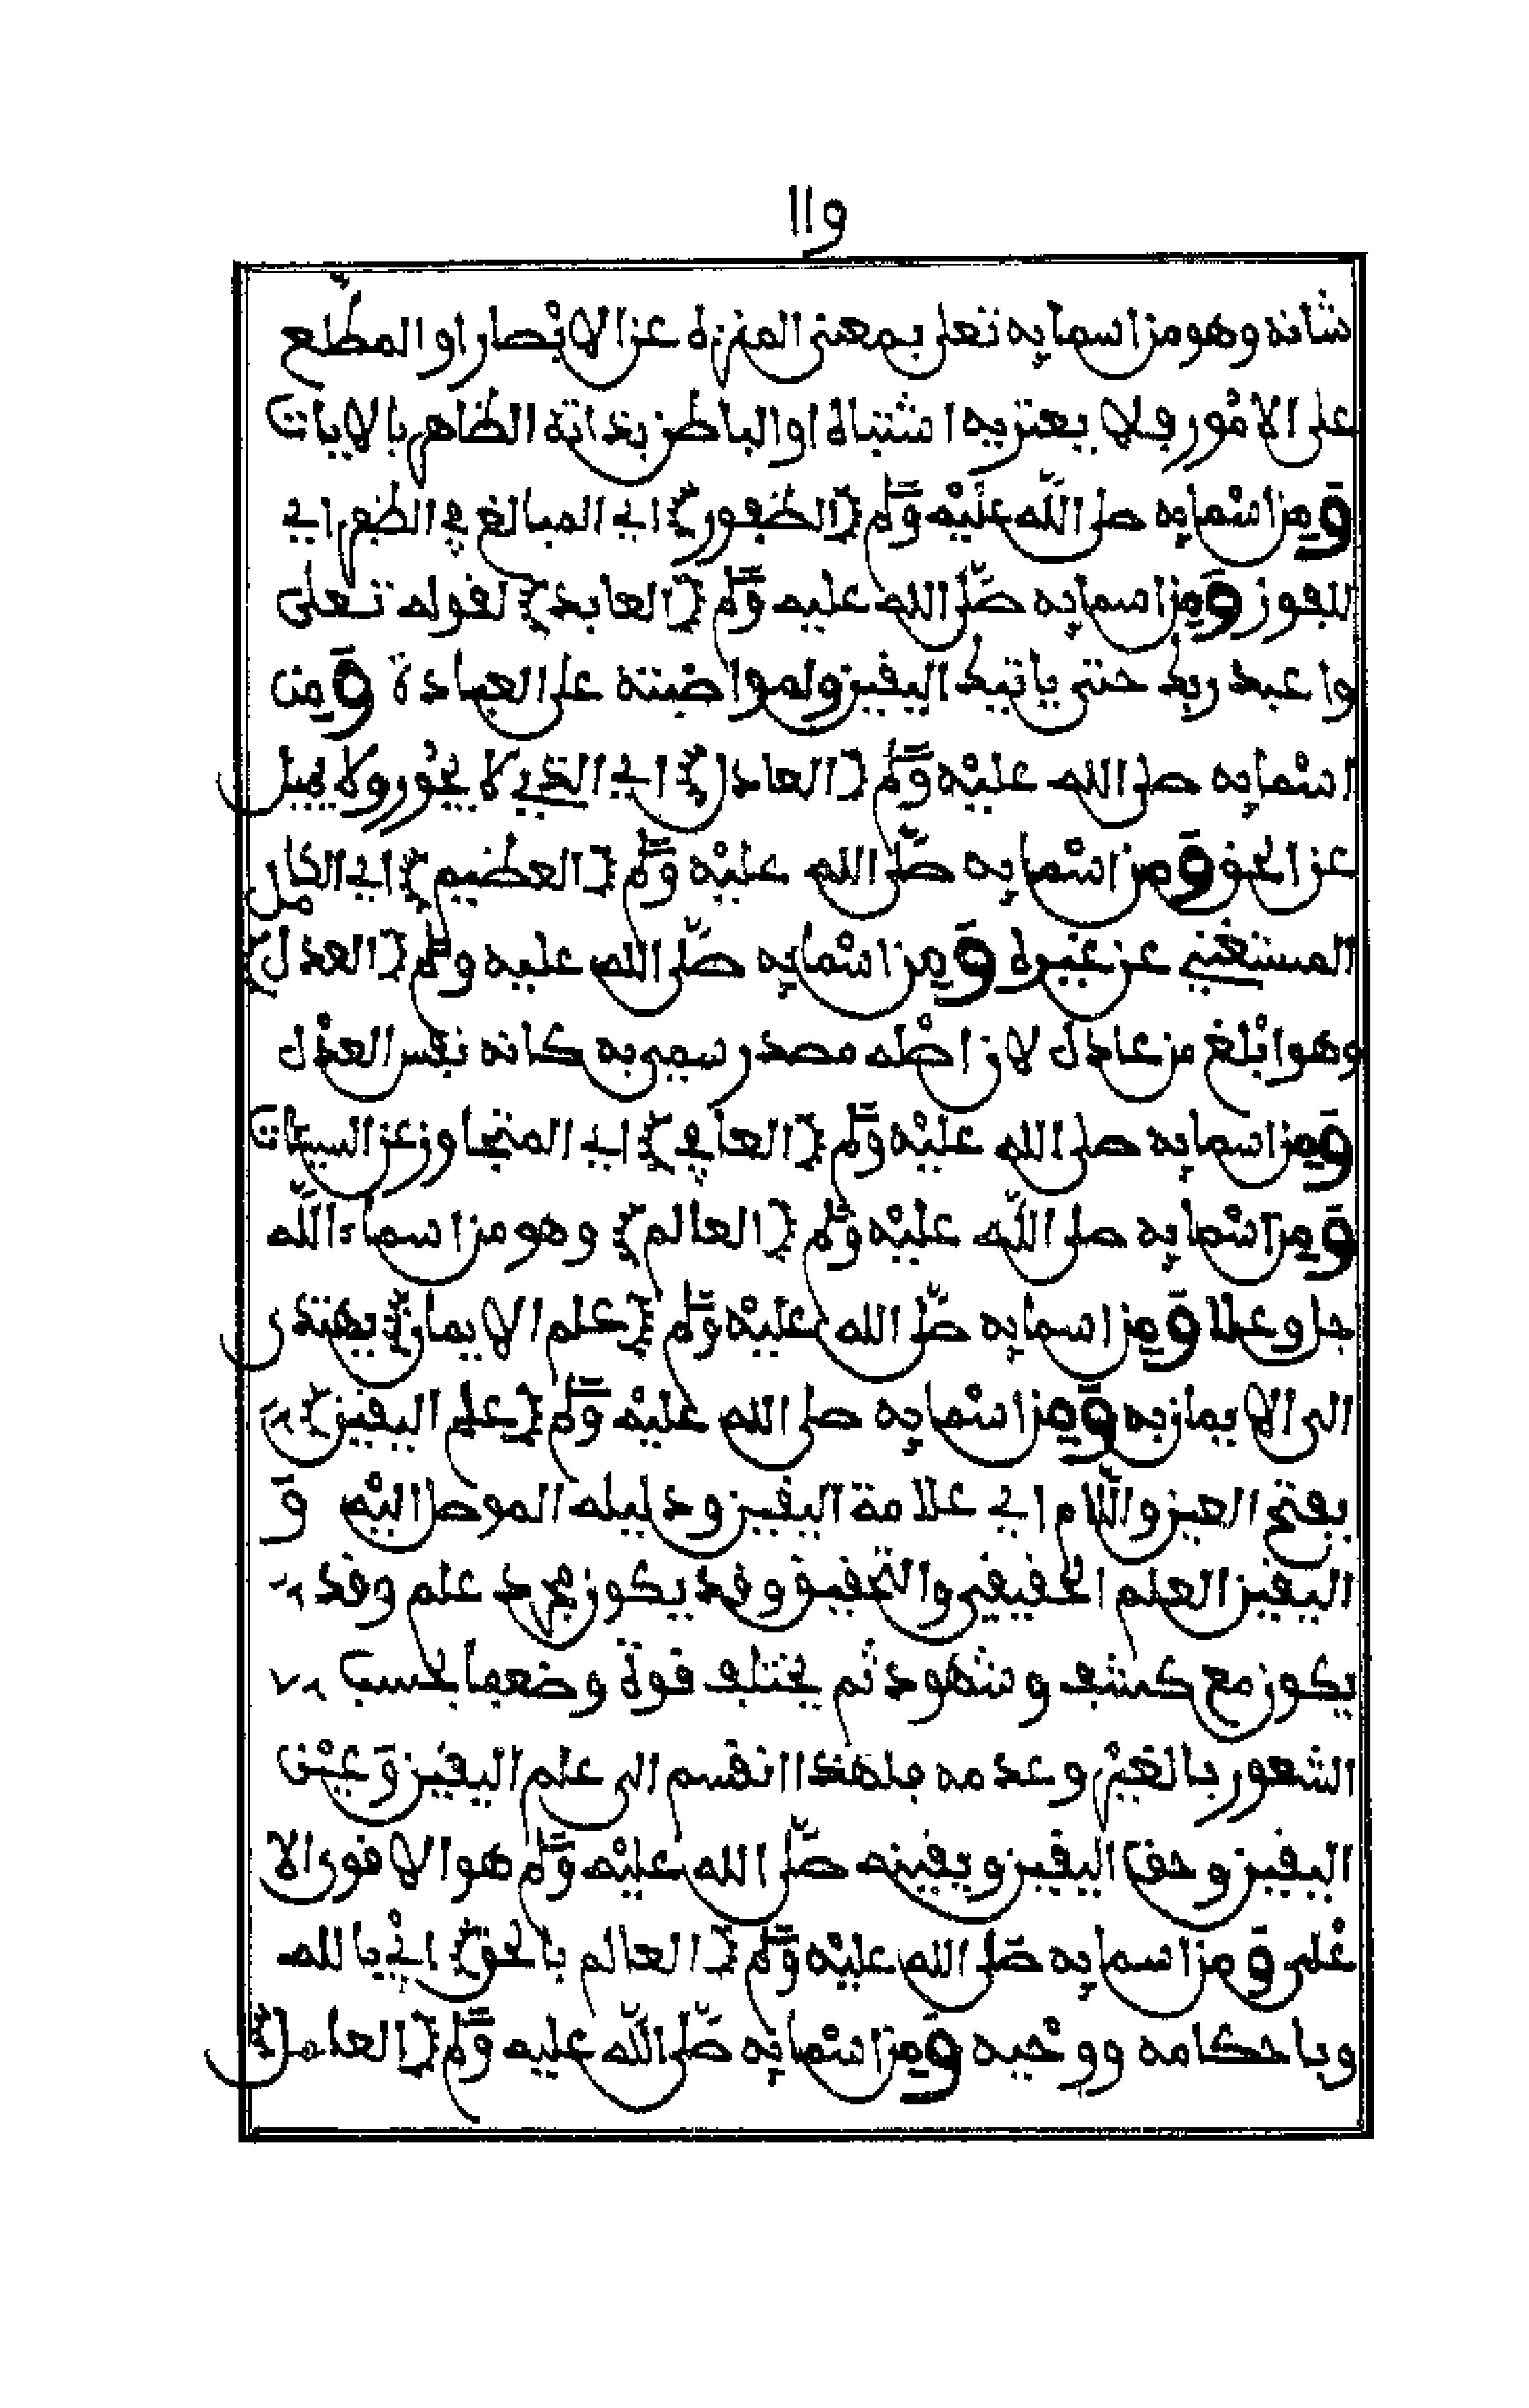 ١١٩
شانه وهو من اسمايه تعلى بمعنى المنزه عن الابْصار او المطّلع
على الامُور فلا يعتريه اشتباه او الباطن بذاته الظاهر بالايات
وَمِن اسْمايه صلى اللّه عليْه وسلّم {الظفور} اي المبالغ في الظفر اي
الفوز وَمِن اسمايه صلّى الله عليه وسلّم {العابد} لقوله تعلى
واعبد ربك حتى ياتيك اليقين ولمواضبته على العبادة وَمِن
اسْمايه صلى الله عليْه وسلّم {العادل} اي الذي لا يجُور ولا يميل
عن الحق وَمِن اسْمايه صلّى الله عليْه وسلّم {العظيم} اي الكامل
المستغْني عن غيره وَمِن اسْمايه صلّى الله عليه وسلّم {العدْل}
وهو ابْلغ من عادل لان اصْله مصدر سمى به كانه نفس العدْل
وَمِن اسمايه صلى الله عليْه وسلّم {العافي} اي المتجاوز عن السيئات
وَمِن اسْمايه صلى اللّه عليْه وسلّم {العالم} وهو من اسماء اللّه
جل وعلا وَمِن اسمايه صلّى الله عليْه وسلّم {علم الايمان} يهتدى
الى الايمان به وَمِن اسْمايه صلى الله عليْه وسلّم {علم اليقين}
بفتح العين واللّام اي علامة اليقين ودليله الموصل اليْه وَ
اليقين العلم الحقيقى والتحقيق وقد يكون مجرد علم وقد
يكون مع كشف وشهود ثم يختلف قوة وضعفا بحسب
الشعور بالغيْر وعدمه فلهذا انقسم الى علم اليقين وَعيْن
اليقين وحق اليقين ويقينه صلّى الله عليْه وسلّم هو الاقوى الا
عْلى وَمن اسمايه صلّى الله عليْه وسلّم {العالم بالحق} ايْ بالله
وباحكامه ووحْيه وَمِن اسْمايه صلّى اللّه عليه وسلّم {العامل}